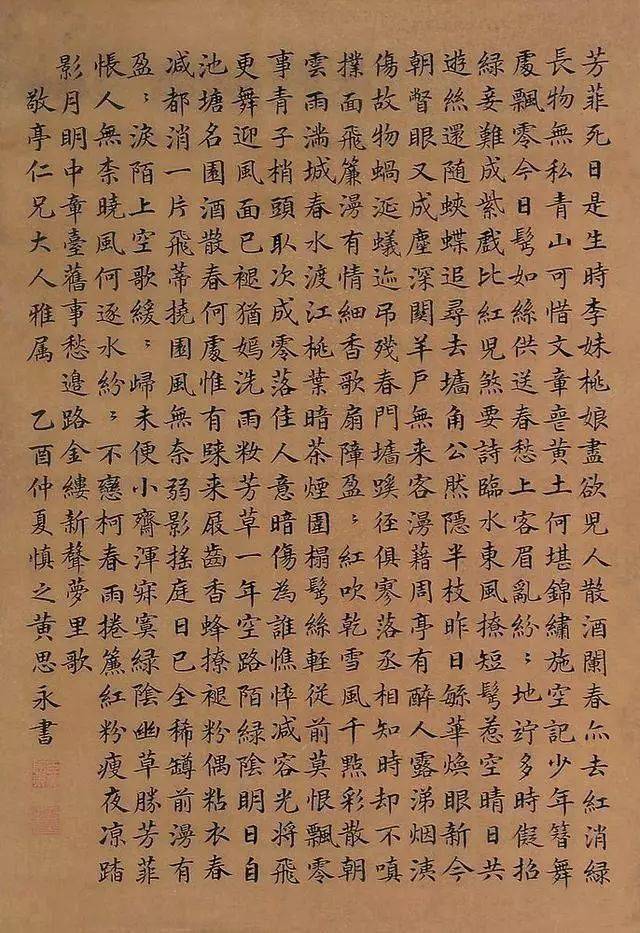 芳菲死日是生時李妹桃娘盡欲兒人散酒闌春亦去紅消緑
長物無私青山可惜文章喪黄土何堪錦繡施空記少年簪舞
處飄零今日鬓如絲供送春愁上客眉亂紛﹕地竚多時假招
緑妾難成紫戲比紅兒煞要詩臨水東風撩短鬓惹空晴日共
遊絲還随蛺蝶追尋去墻角公然隱半枝昨日緐華焕眼新今
朝瞥眼又成塵深関羊户無来客漫藉周亭有醉人露涕烟洟
傷故物蝸涎蟻迹弔残春門墻蹊径俱寥落丞相知時却不嗔
撲面飛簾漫有情細香歌扇障盈﹕紅吹乾雪風千點彩散朝
雲雨満城春水渡江桃葉暗茶煙圍榻鬓絲軽従前莫恨飄零
事青子梢頭取次成零落佳人意暗傷為誰憔悴减容光將飛
更舞迎風面已褪猶嫣洗雨粧芳草一年空路陌緑陰明日自
池塘名園酒散春何處惟有歸来屐齒香蜂撩褪粉偶粘衣春
减都消一片飛蒂撓園風無奈弱影摇庭日已全稀罇前漫有
盈﹕淚陌上空歌緩﹕歸未便小齋渾寂寞緑陰幽草勝芳菲
悵人無柰曉風何逐水紛﹕不戀柯春雨捲簾紅粉瘦夜凉踏
影月明中章臺舊事愁邉路金縷新聲夢里歌
敬亭仁兄大人雅属 乙酉仲夏慎之黄思永書